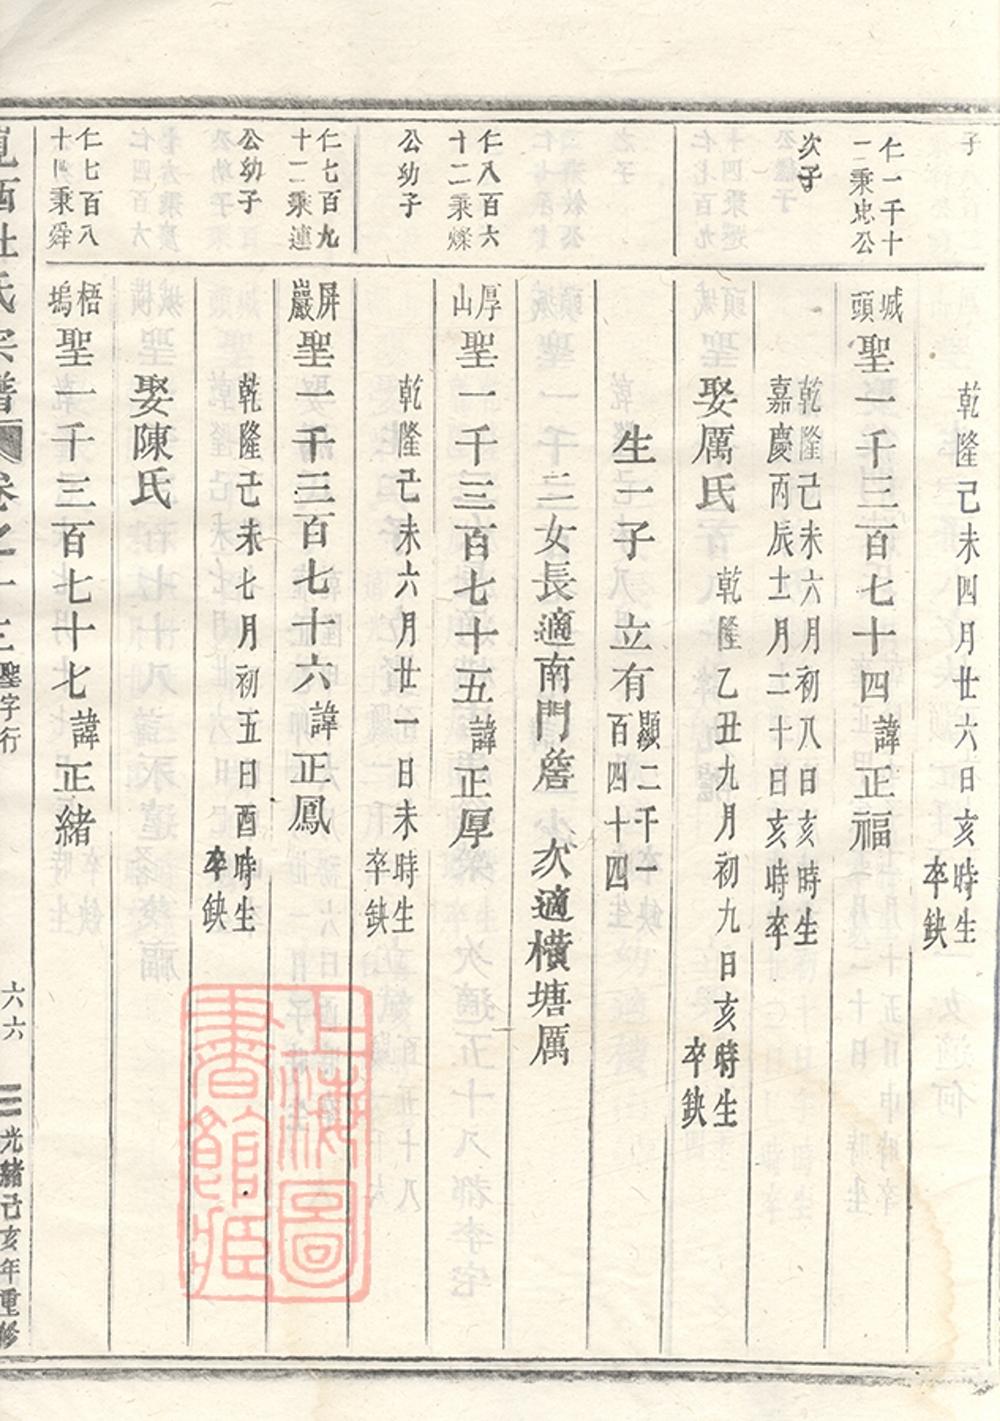 子
乾隆己未四月廿六日亥時生
卒缺
仁一千十
二秉忠公
次子
城頭
聖一千三百七十四諱正福
乾隆己未六月初八日亥時生
嘉慶丙辰十一月二十日亥時卒
娶厲氏
乾隆乙丑九月初九日亥時生
卒缺
生一子 立有
顯二千一
百四十四
二女長適南門詹 次適橫塘厲
仁八百六
十二秉燦
公幼子
厚山
聖一千三百七十五諱正厚
乾隆己未六月廿一日未時生
卒缺
仁七百九
十二秉連
公幼子
屏巖
聖一千三百七十六諱正鳳
乾隆己未七月初五日酉時生
卒缺
娶陳氏
仁七百八
十四秉舜
梧塢
聖一千三百七十七諱正緒
杜氏宗譜 卷之十三 聖字行
六六
光緒己亥年重修
上海圖書館藏